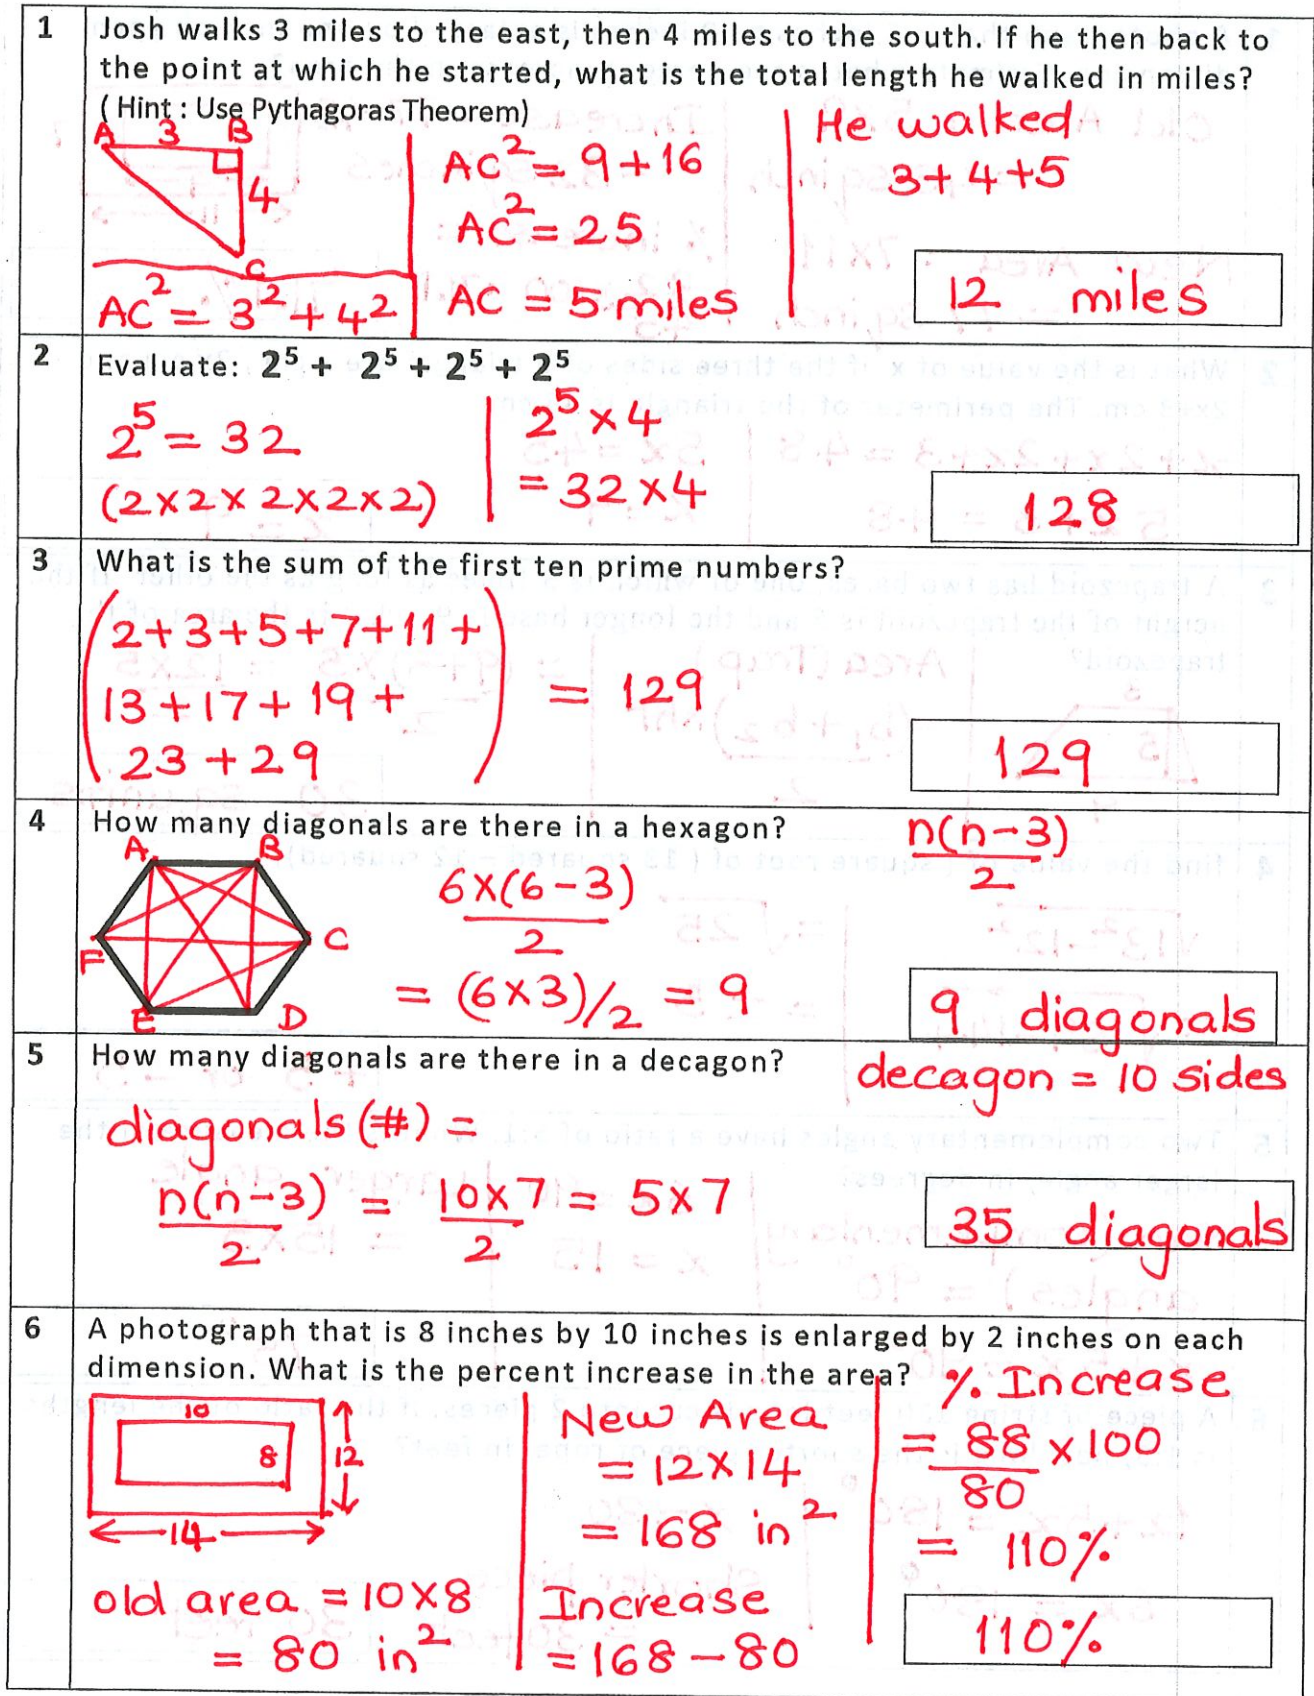 1 Josh walks 3 miles to the east, then 4 miles to the south. If he then back to
the point at which he started, what is the total length he walked in miles?
( Hint : Use Pythagoras Theorem)
A 3 B
4
C
AC² = 3² + 4²
AC² = 9 + 16
AC² = 25
AC = 5 miles
He walked
3 + 4 + 5
12 miles
2 Evaluate: 2⁵ + 2⁵ + 2⁵ + 2⁵
2⁵ = 32
(2x2x2x2x2)
2⁵ x 4
= 32 x 4
128
3 What is the sum of the first ten prime numbers?
(2+3+5+7+11+
13+17+19+
23+29)
= 129
129
4 How many diagonals are there in a hexagon?
A B
C
F
E D
6x(6-3)
2
= (6x3)/2 = 9
n(n-3)
2
9 diagonals
5 How many diagonals are there in a decagon?
decagon = 10 sides
diagonals (#) =
n(n-3) = 10x7 = 5x7
2 2
35 diagonals
6 A photograph that is 8 inches by 10 inches is enlarged by 2 inches on each
dimension. What is the percent increase in the area?
10
8 12
14
old area = 10x8
= 80 in²
New Area
= 12x14
= 168 in²
Increase
= 168-80
% Increase
= 88 x 100
80
= 110%
110%